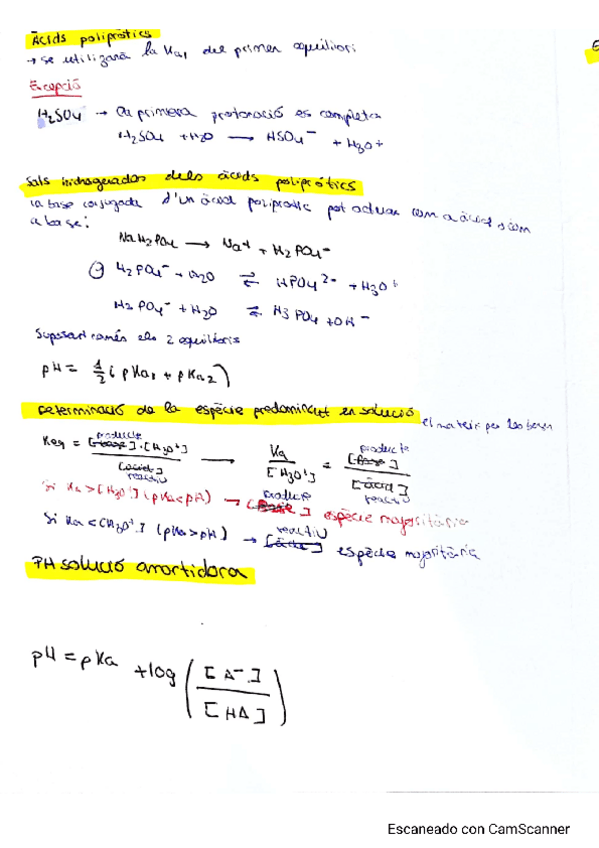 Àcids polipròtics
→ se utilitzarà la Ka₁ del primer equilibri
Excepció
H₂SO₄ → la primera protonació es completa
H₂SO₄ + H₂O ⟶ HSO₄⁻ + H₃O⁺
Sals hidrogenades dels àcids polipròtics
la base conjugada d'un àcid polipròtic pot actuar com a àcid i com
a base:
NaH₂PO₄ ⟶ Na⁺ + H₂PO₄⁻
H₂PO₄⁻ + H₂O ⇌ HPO₄²⁻ + H₃O⁺
H₂PO₄⁻ + H₂O ⇌ H₃PO₄ + OH⁻
els 2 equilibris
pH = 1/2 (pKa₁ + pKa₂)
Determinació de la espècie predominant en solució el mateix per les bases
Keq = producte [base]·[H₃O⁺] / [àcid] reactiu ⟶ Ka / [H₃O⁺] = producte [base] / [àcid] reactiu
Si Ka > [H₃O⁺] (pKa < pH) → producte [Base] espècie majoritària
Si Ka < [H₃O⁺] (pKa > pH) → reactiu [àcid] espècie majoritària
PH solució amortidora
pH = pKa + log ( [A⁻] / [HA] )
Escaneado con CamScanner